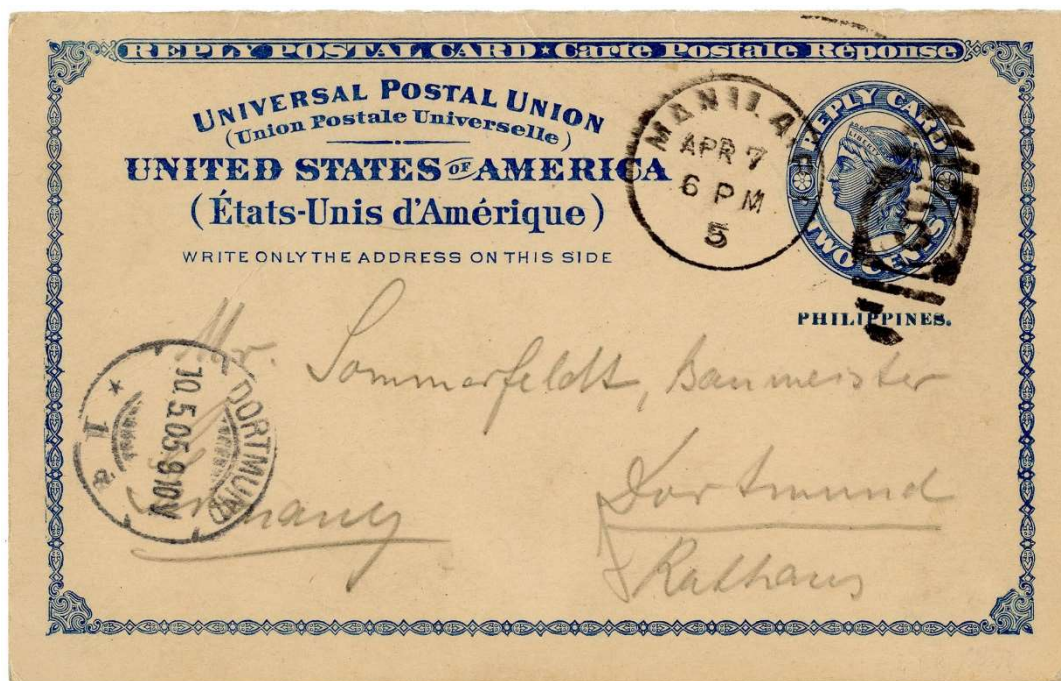 REPLY POSTAL CARD ★ Carte Postale Réponse
UNIVERSAL POSTAL UNION
(Union Postale Universelle)
UNITED STATES OF AMERICA
(États-Unis d'Amérique)
WRITE ONLY THE ADDRESS ON THIS SIDE
MANILA
APR 7
6 PM
5
REPLY CARD
LIBERTY
TWO CENTS
PHILIPPINES.
Mr. Sommerfeldt, Baumeister
Dortmund
Rathaus
Germany
DORTMUND
10.5.05.9-10V
★ 1 a